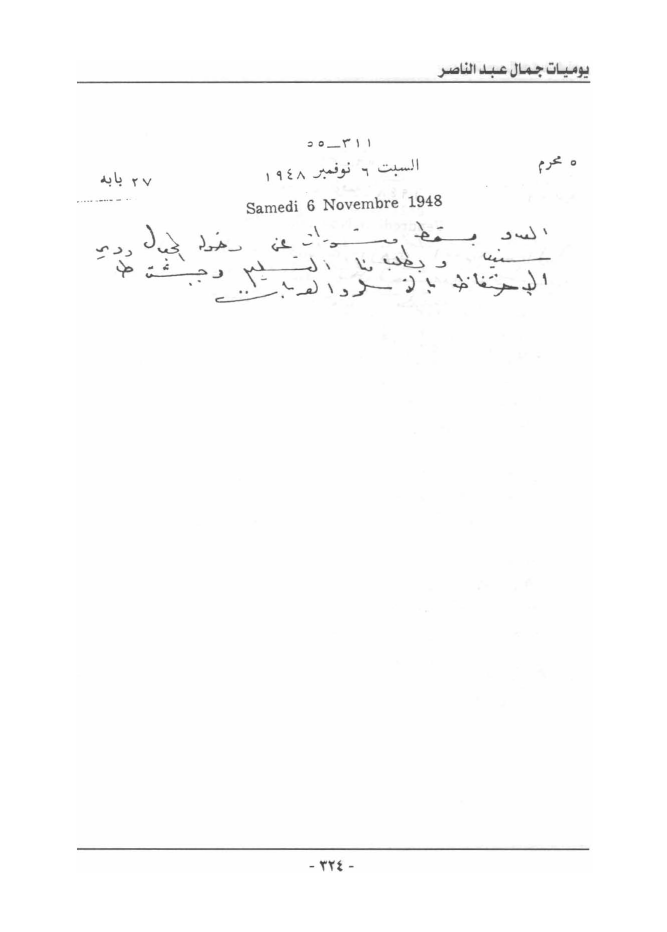 يوميات جمال عبد الناصر
٣١١ــ٥٥
٥ محرم
السبت ٦ نوفمبر ١٩٤٨
٢٧ بابه
Samedi 6 Novembre 1948
العدو يسقط منشورات عن دخوله المجدل ودير
سنيد ويطلب منا التسليم
الاحتفاظ
- ٣٢٤ -